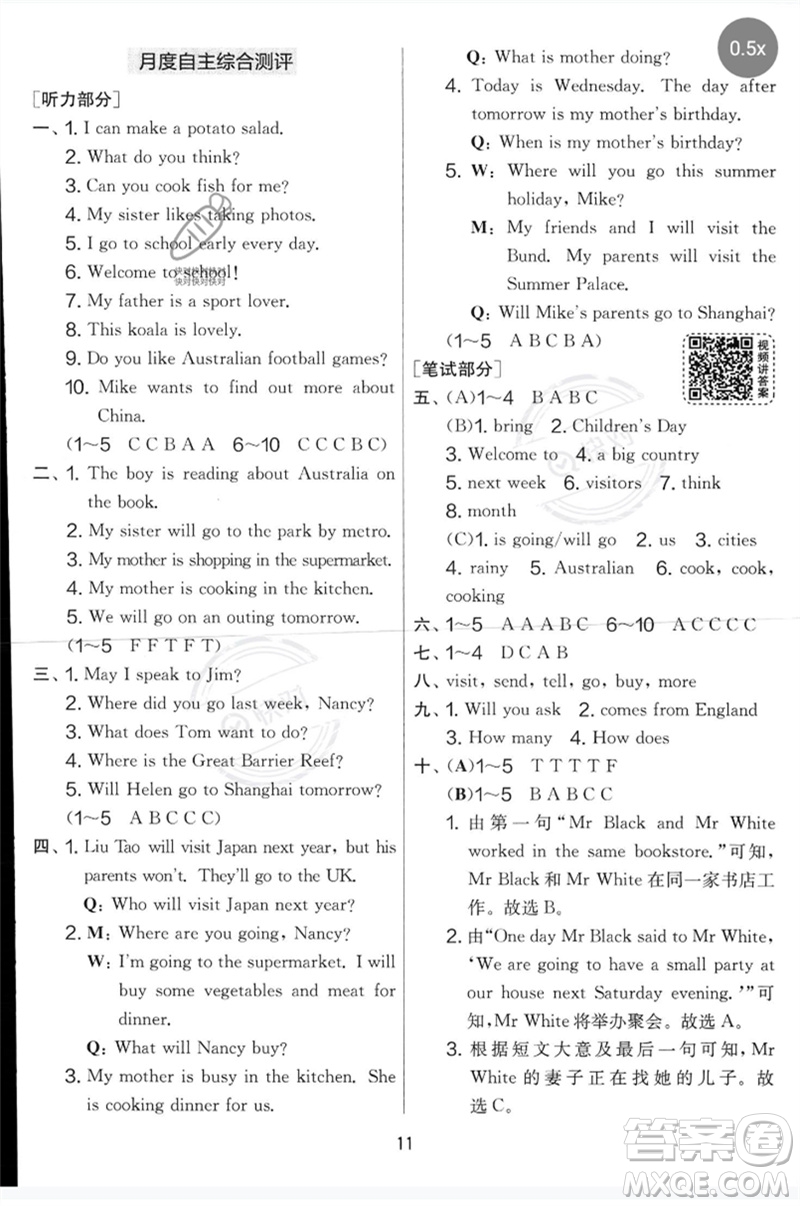 月度自主综合测评
[听力部分]
一、1. I can make a potato salad.
2. What do you think?
3. Can you cook fish for me?
4. My sister likes taking photos.
5. I go to school early every day.
6. Welcome to school!
7. My father is a sport lover.
8. This koala is lovely.
9. Do you like Australian football games?
10. Mike wants to find out more about
China.
(1～5 C C B A A 6～10 C C C B C)
二、1. The boy is reading about Australia on
the book.
2. My sister will go to the park by metro.
3. My mother is shopping in the supermarket.
4. My mother is cooking in the kitchen.
5. We will go on an outing tomorrow.
(1～5 F F T F T)
三、1. May I speak to Jim?
2. Where did you go last week, Nancy?
3. What does Tom want to do?
4. Where is the Great Barrier Reef?
5. Will Helen go to Shanghai tomorrow?
(1～5 A B C C C)
四、1. Liu Tao will visit Japan next year, but his
parents won't. They'll go to the UK.
Q: Who will visit Japan next year?
2. M: Where are you going, Nancy?
W: I'm going to the supermarket. I will
buy some vegetables and meat for
dinner.
Q: What will Nancy buy?
3. My mother is busy in the kitchen. She
is cooking dinner for us.
Q: What is mother doing?
4. Today is Wednesday. The day after
tomorrow is my mother's birthday.
Q: When is my mother's birthday?
5. W: Where will you go this summer
holiday, Mike?
M: My friends and I will visit the
Bund. My parents will visit the
Summer Palace.
Q: Will Mike's parents go to Shanghai?
(1～5 A B C B A)
[笔试部分]
五、(A)1～4 B A B C
(B)1. bring 2. Children's Day
3. Welcome to 4. a big country
5. next week 6. visitors 7. think
8. month
(C)1. is going/will go 2. us 3. cities
4. rainy 5. Australian 6. cook, cook,
cooking
六、1～5 A A A B C 6～10 A C C C C
七、1～4 D C A B
八、visit, send, tell, go, buy, more
九、1. Will you ask 2. comes from England
3. How many 4. How does
十、(A)1～5 T T T T F
(B)1～5 B A C C A
1. 由第一句“Mr Black and Mr White
worked in the same bookstore.”可知,
Mr Black 和 Mr White 在同一家书店工
作。故选 B。
2. 由“One day Mr Black said to Mr White,
‘We are going to have a small party at
our house next Saturday evening.’”可
知,Mr White 将举办聚会。故选 A。
3. 根据短文大意及最后一句可知,Mr
White 的妻子正在找她的儿子。故
选 C。
11
0.5x
视频讲答案
快对快对快对
快对快对快对
答案圈
MXQE.COM